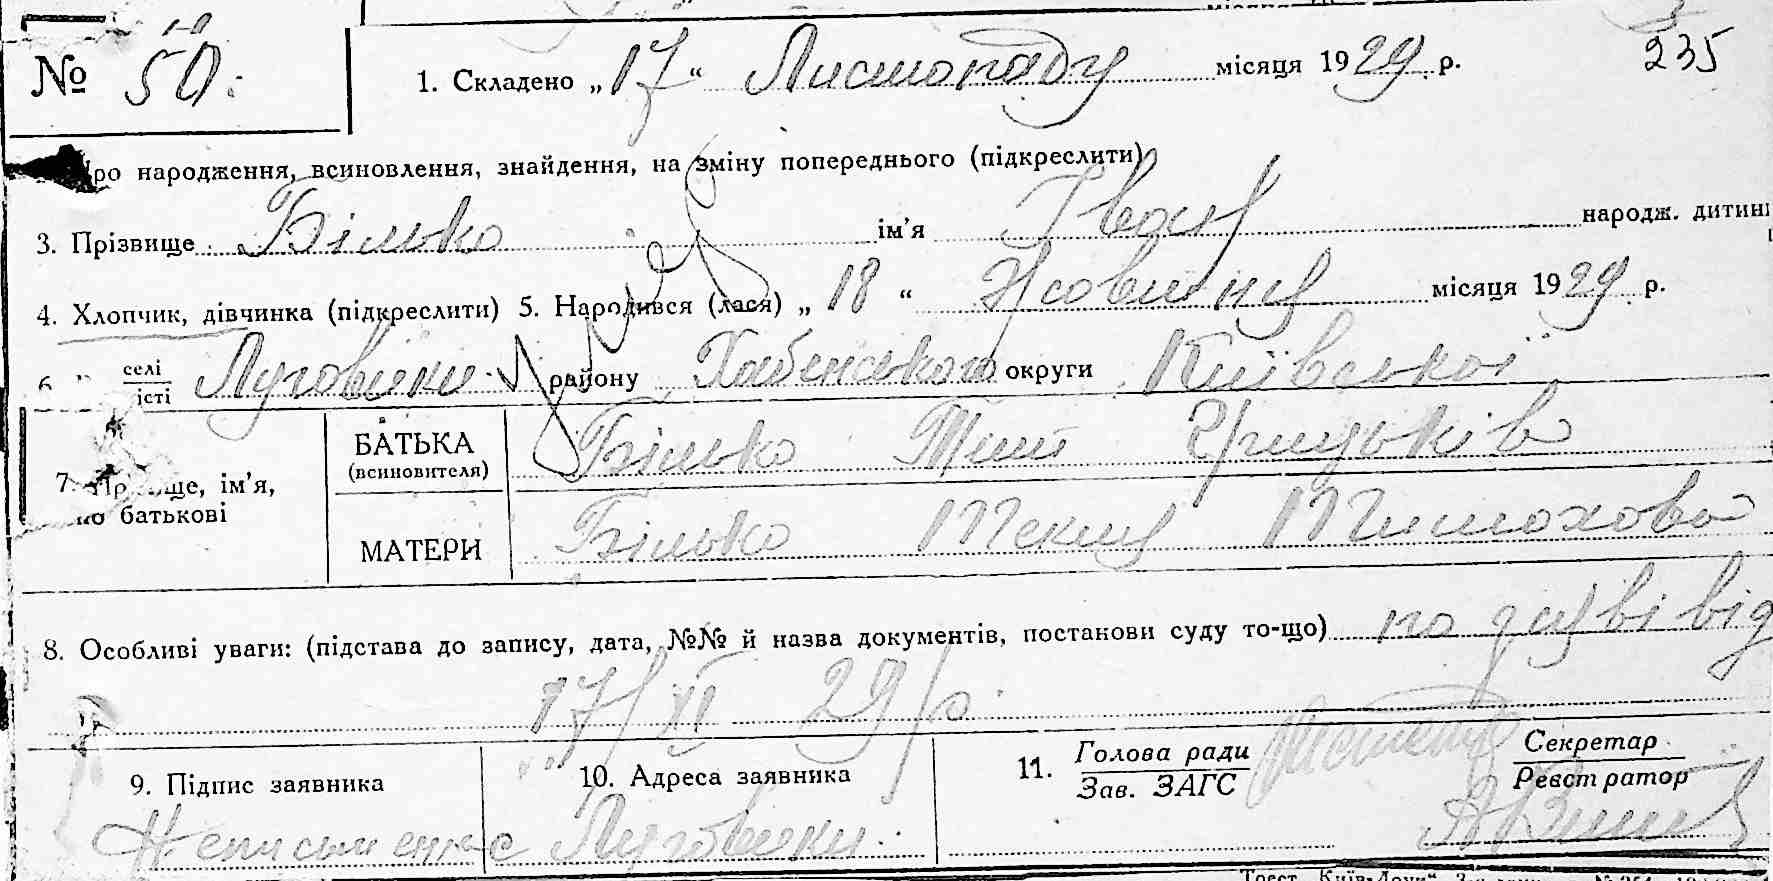 № 50. 1. Складено „17“ Листопаду місяця 1929 р. 235
Про народження, всиновлення, знайдення, на зміну попереднього (підкреслити)
3. Прізвище Білько ім’я Іван народж. дитини
4. Хлопчик, дівчинка (підкреслити) 5. Народився (лася) „18“ Жовтня місяця 1929 р.
6. селі
місті Луговики району Хабенського округи Київської
7. Прізвище, ім’я, по батькові
БАТЬКА (всиновителя) Білько Тит Грицьків
МАТЕРИ Білько Текля Тимохова
8. Особливі уваги: (підстава до запису, дата, №№ й назва документів, постанови суду то-що) по заяві від
17/XI 29 р.
9. Підпис заявника 10. Адреса заявника 11. Голова ради Секретар
Зав. ЗАГС Реєстратор
Неписьменна Луговики